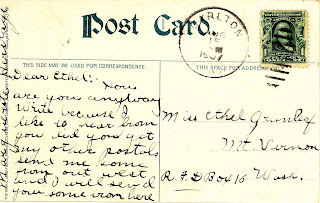 Post Card.
THIS SIDE MAY BE USED FOR CORRESPONDENCE.
THIS SPACE FOR ADDRESS
RLTON
1907
Dear Ethel:- How
are you anyway
Write because I
like to hear from
you did you get
my other postals
send me some
from out west
and I will send
you some from here
Miss Ethel
Mt. Vernon
R F D Box 16 Wash.